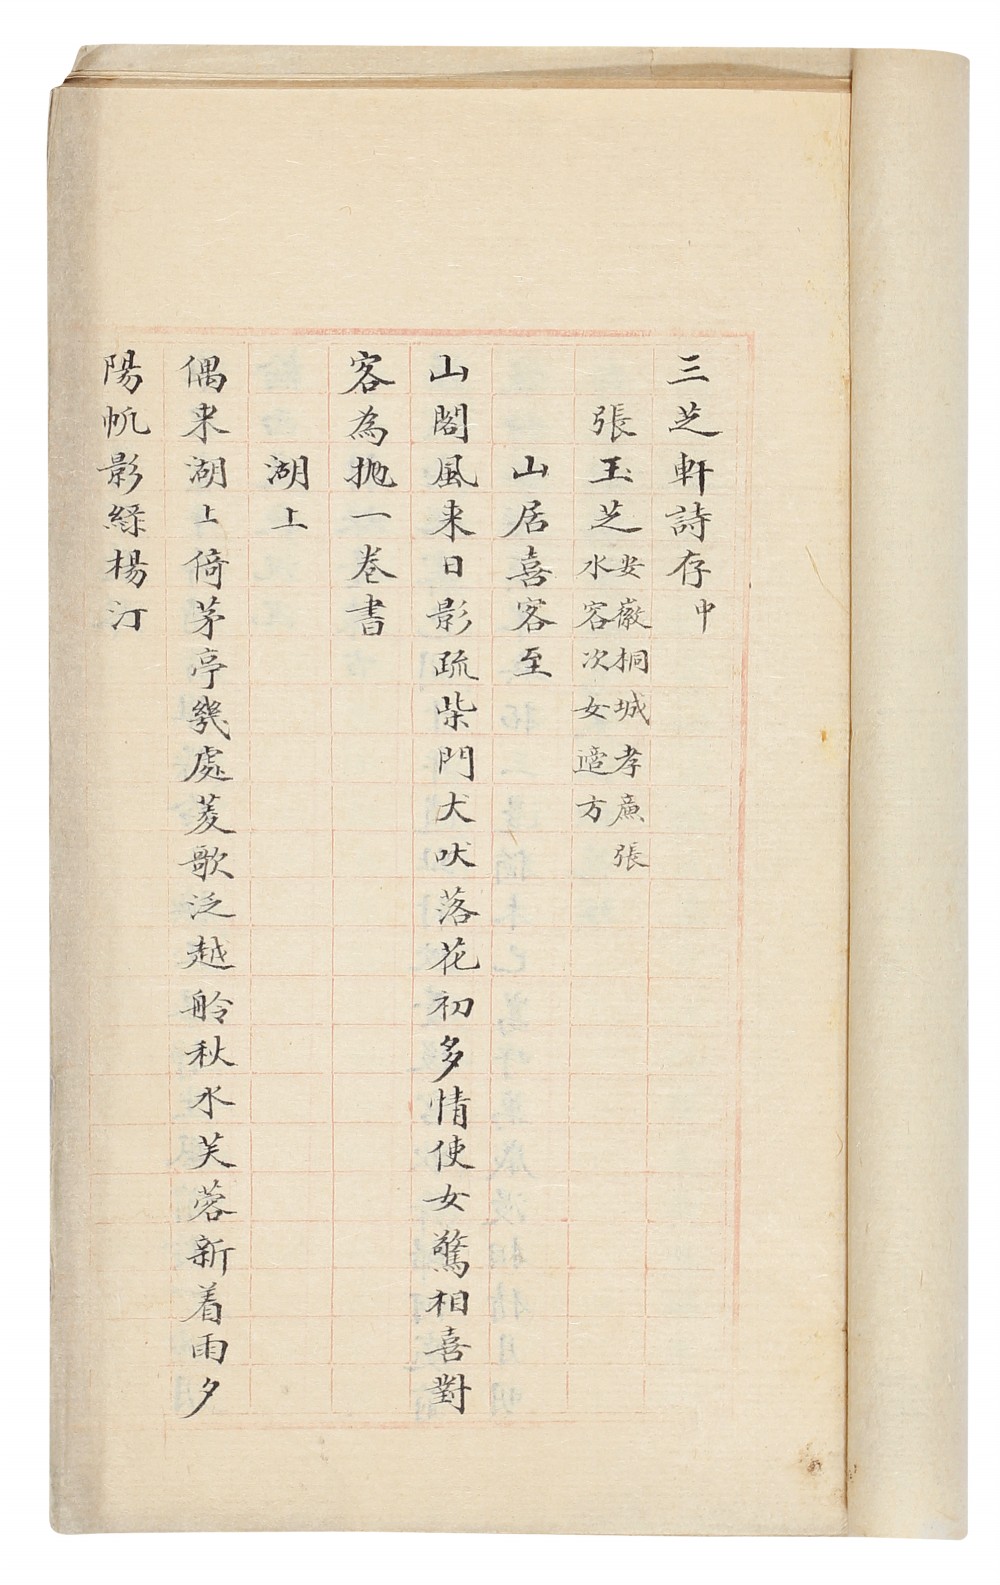 三芝軒詩存中
張玉芝安徽桐城孝廉張
水容次女適方
山居喜客至
山閣風来日影疏柴門犬吠落花初多情使女驚相喜對
客為拋一卷書
湖上
偶来湖上倚茅亭幾處菱歌泛越舲秋水芙蓉新着雨夕
陽帆影綠楊汀